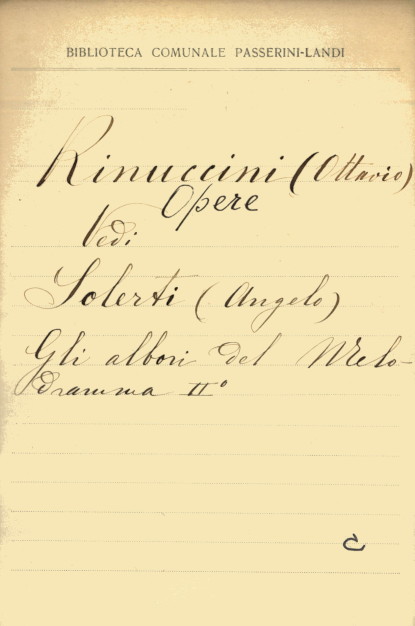 BIBLIOTECA COMUNALE PASSERINI-LANDI
Rinuccini (Ottavio)
Opere
Vedi
Solerti (Angelo)
Gli albori del Melo-
dramma IIº